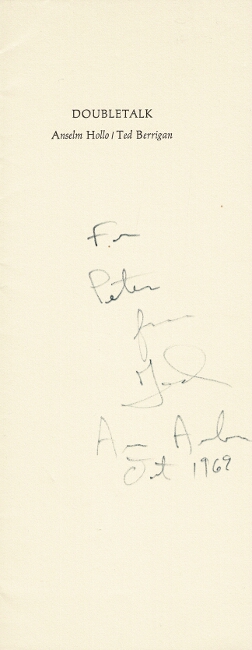 DOUBLETALK
Anselm Hollo / Ted Berrigan
For
Peter
from
Ted
Ann Arbor
Oct 1969